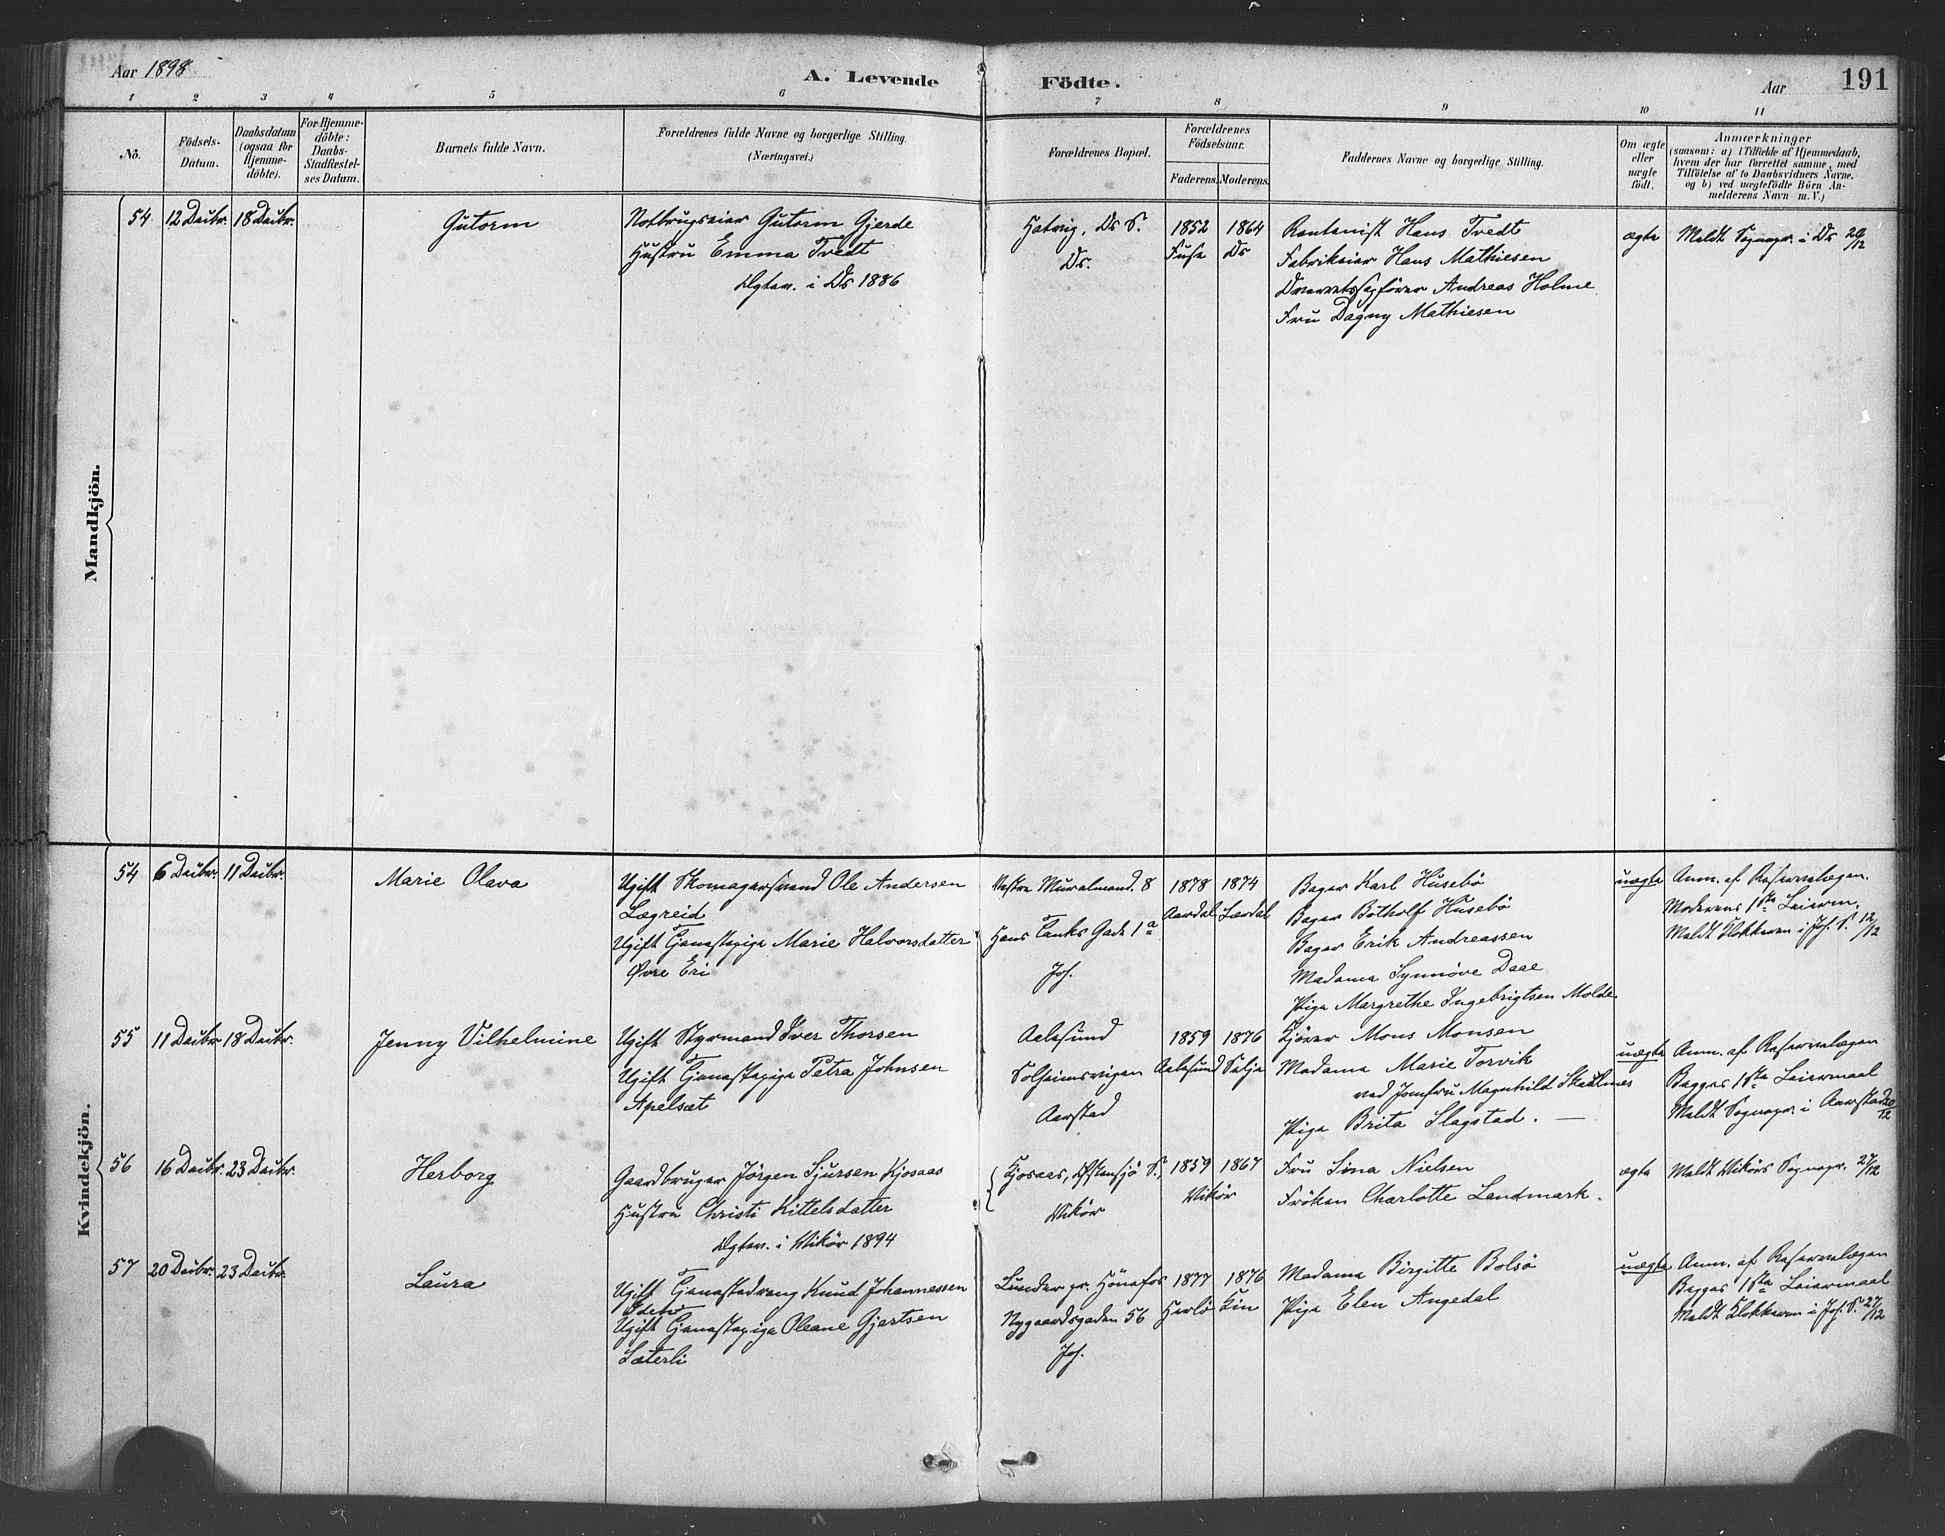 Aar 1898.
A. Levende Födte.
Aar
191
1 2 3 4 5 6 7 8 9 10 11
No.
Födsels-
Datum.
Daabsdatum
(ogsaa for
Hjemme-
döbte).
For Hjemme-
döbte:
Daabs-
Stadfæstel-
ses Datum.
Barnets fulde Navn.
Forældrenes fulde Navne og borgerlige Stilling.
(Næringsvei.)
Forældrenes Bopæl.
Forældrenes
Födselsaar.
Faderens. Moderens.
Faddernes Navne og borgerlige Stilling.
Om ægte
eller
uægte
født.
Anmærkninger
(saasom: a) i Tilfælde af Hjemmedaab,
hvem der har forrettet samme, med
Tilföielse af to Daabsvidners Navne,
og b) ved uægtefödte Börn An-
melderens Navn m. V.)
Mandkjön.
54 12 Decbr. 18 Decbr.
Gutorm
Gutorm Gjerde
Hustru Emma Tvedt
Ægtev. i Os 1886
Hatvig, Os S.
Os.
1852 1864
Fuse Os
Hans Tvedt
Fabrikeier Hans Mathiesen
Overretssagfører Andreas Holme
Fru Dagny Mathiesen
ægte
Meldt Sognepr. i Os 29/12
Kvindekjön.
54 6 Decbr. 11 Decbr.
Marie Olava
Ugift Skomagersvend Ole Andersen
Lægreid
Ugift Tjenestepige Marie Halvorsdatter
Øvre Eri
Vestre Muralmend. 8
Hans Tanks Gade 1a
Joh.
1878 1874
Aardal Lærdal
Bager Karl Husebö
Bager Botholf Husebö
Bager Erik Andreassen
Madame Synnöve Daae
Pige Margrethe Ingebrigtsen Molde
uægte
Anm. af Reservelægen.
Moderens 1ste Leierm.
Meldt Klokkeren i Joh. S. 12/12
55 11 Decbr 18 Decbr.
Jenny Vilhelmine
Ugift Styrmand Iver Thorsen
Ugift Tjenestepige Petra Johnsen
Apelsæt
Aalesund
Solheimsvigen
Aarstad
1859 1876
Aalesund Selje
Kjörer Mons Monsen
Madame Marie Torvik
ved Jomfru Magnhild Skulmes
Pige Brita Slagstad.
uægte
Anm. af Reservelægen
Begges 1ste Leiermaal
Meldt Sognepr. i Aarstad 20/12
56 16 Decbr. 23 Decbr.
Herborg
Gaardbruger Jörgen Sjursen Kjosaas
Hustru Christi Kittelsdatter
Ægtev. i Vikör 1894
Kjosaas, Östensjö S.,
Vikör
1859 1867
Vikör
Fru Sina Nielsen
Fröken Charlotte Landmark.
ægte
Meldt Vikörs Sognepr. 27/12
57 20 Decbr. 23 Decbr.
Laura
Ugift Tjenestedreng Knud Johannessen
Ugift Tjenestepige Oleane Gjertsen
Sæterli
Lunder pr. Hönefos
Nygaardsgaden 56
Joh.
1877 1876
Herlö Kin
Madame Birgitte Bolsö
Pige Elen Angedal
uægte
Anm. af Reservelægen
Begges 1ste Leiermaal
Meldt Klokkeren i Joh. S. 27/12